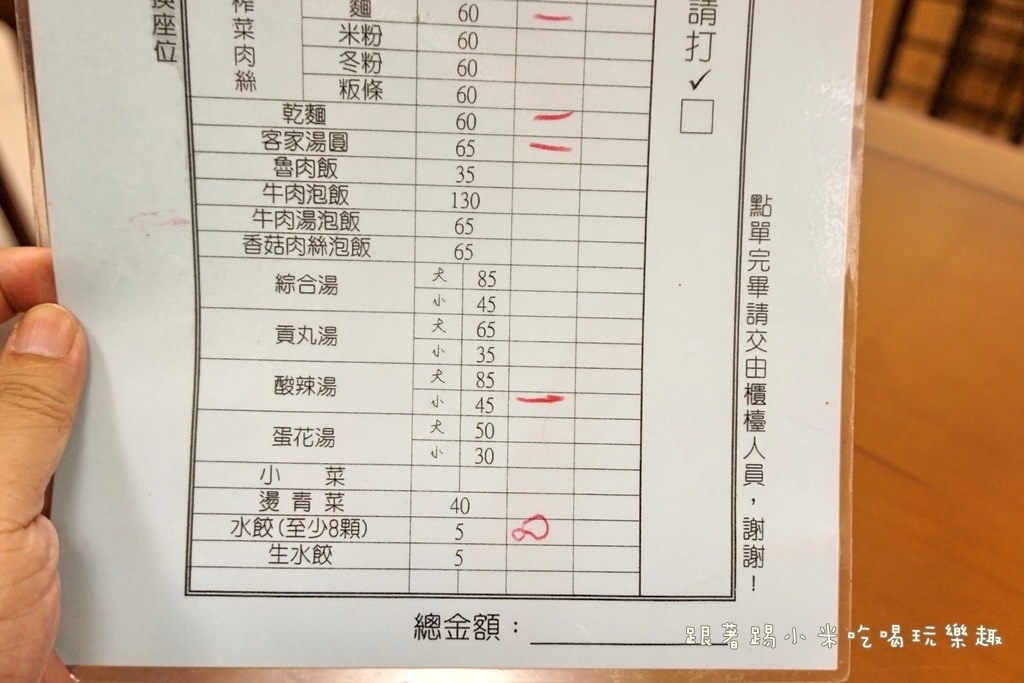 換座位
榨菜肉絲
麵 60 一
米粉 60
冬粉 60
粄條 60
乾麵 60 一
客家湯圓 65 一
魯肉飯 35
牛肉泡飯 130
牛肉湯泡飯 65
香菇肉絲泡飯 65
綜合湯 大 85
小 45
貢丸湯 大 65
小 35
酸辣湯 大 85
小 45 一
蛋花湯 大 50
小 30
小 菜
燙青菜 40
水餃(至少8顆) 5 8
生水餃 5
請打✓□
點單完畢請交由櫃檯人員，謝謝！
總金額：
跟著踢小米吃喝玩樂趣